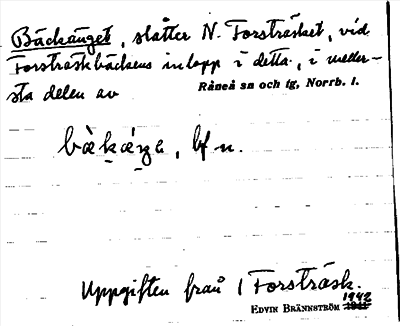 Bäckänget, slåtter N. Forsträsket, vid
Forsträskbäckens inlopp i detta, i neder-
sta delen av
Råneå sn och tg, Norrb. l.
bf n.
Uppgiften från 1 Forsträsk.
1942
EDVIN BRÄNNSTRÖM